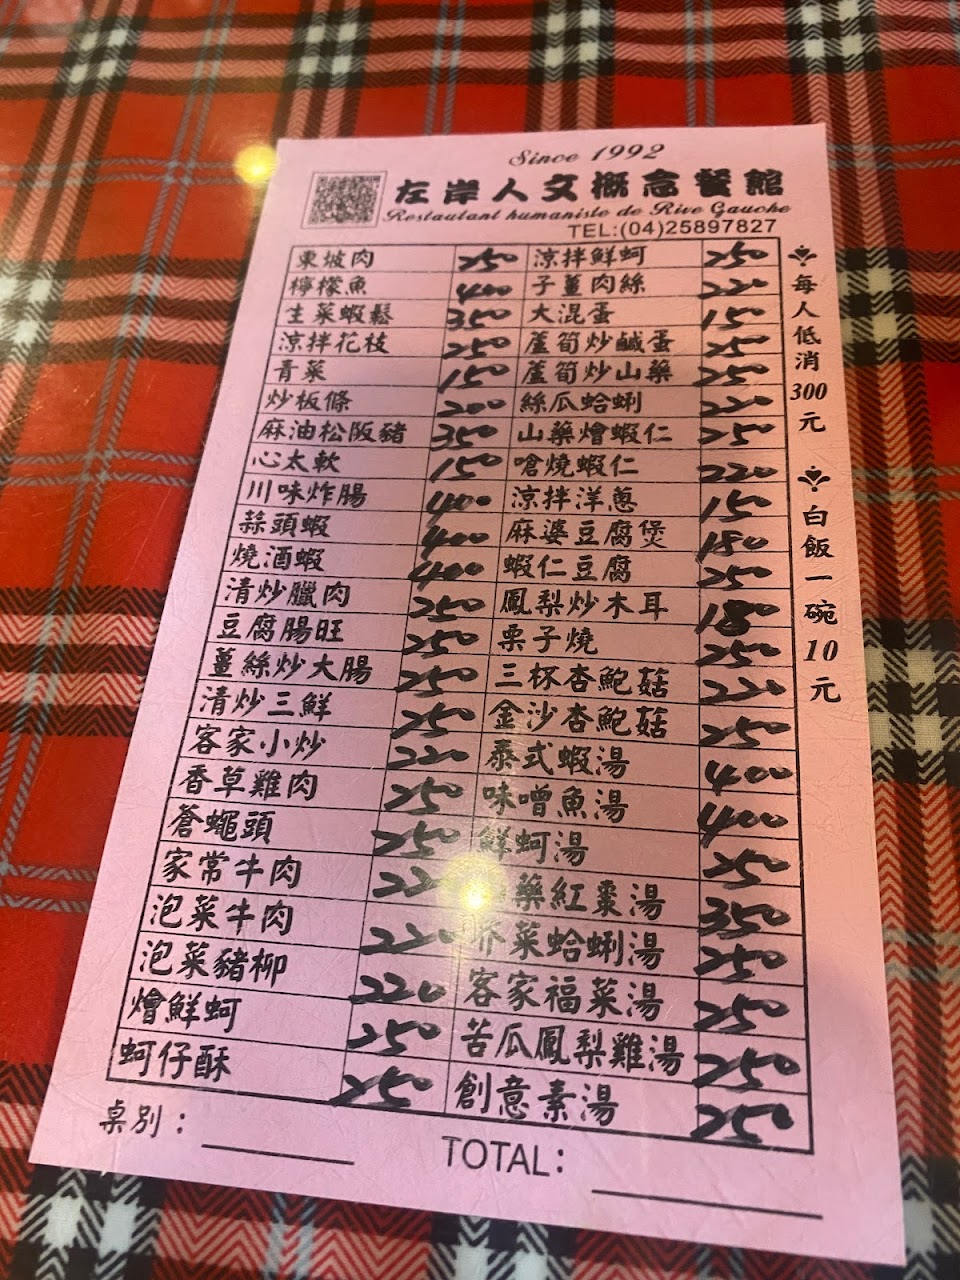 Since 1992
左岸人文概念餐館
Restautant humaniste de Rive Gauche
TEL:(04)25897827
東坡肉 250 涼拌鮮蚵 250
檸檬魚 400 子薑肉絲 220
生菜蝦鬆 350 大混蛋 150
涼拌花枝 250 蘆筍炒鹹蛋 250
青菜 150 蘆筍炒山藥 250
炒板條 200 絲瓜蛤蜊 220
麻油松阪豬 350 山藥燴蝦仁 250
心太軟 150 嗆燒蝦仁 220
川味炸腸 400 涼拌洋蔥 150
蒜頭蝦 400 麻婆豆腐煲 180
燒酒蝦 400 蝦仁豆腐 250
清炒臘肉 250 鳳梨炒木耳 180
豆腐腸旺 250 栗子燒 250
薑絲炒大腸 250 三杯杏鮑菇 220
清炒三鮮 250 金沙杏鮑菇 250
客家小炒 220 泰式蝦湯 400
香草雞肉 250 味噌魚湯 400
蒼蠅頭 250 鮮蚵湯 250
家常牛肉 藥紅棗湯 350
泡菜牛肉 220 芥菜蛤蜊湯 250
泡菜豬柳 220 客家福菜湯 250
燴鮮蚵 250 苦瓜鳳梨雞湯 250
蚵仔酥 250 創意素湯 250
每人低消300元
白飯一碗10元
桌別：
TOTAL: